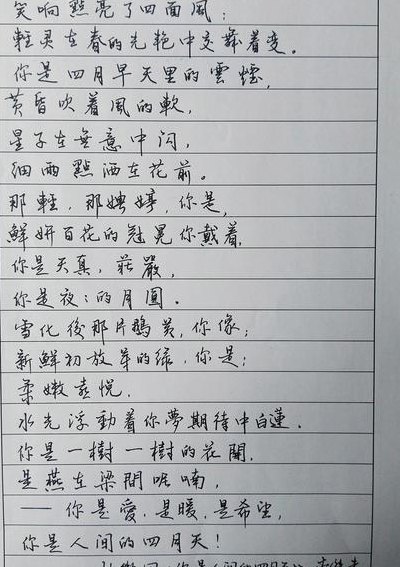 笑响點亮了四面風；
輕灵在春的光艳中交舞着变。
你是四月早天里的雲煙，
黄昏吹着風的軟，
星子在無意中闪，
细雨點洒在花前。
那輕，那娉婷，你是，
鮮妍百花的冠冕你戴着，
你是天真，莊嚴，
你是夜：的月圓。
雪化後那片鵝黄，你像；
新鮮初放芽的绿，你是；
柔嫩喜悦．
水光浮動着你夢期待中白蓮．
你是一樹一樹的花開．
是燕在梁間呢喃，
—— 你是愛．是暖．是希望，
你是人间的四月天！